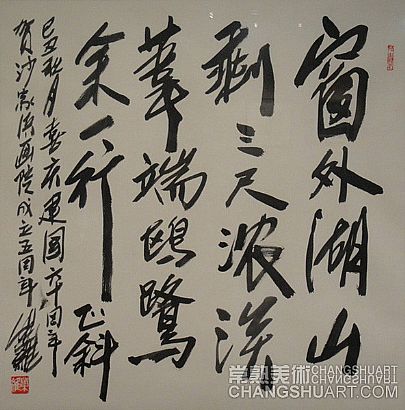 窗外湖山
剩三尺浓淡
筆端鸥鹭
余一行正斜
己丑秋月喜庆建国六十周年
贺沙家浜画院成立五周年
常熟美術 CHANGSHUART